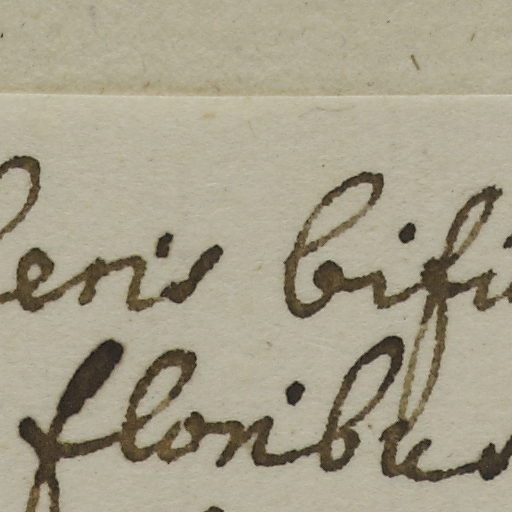 heris bifi
floribus